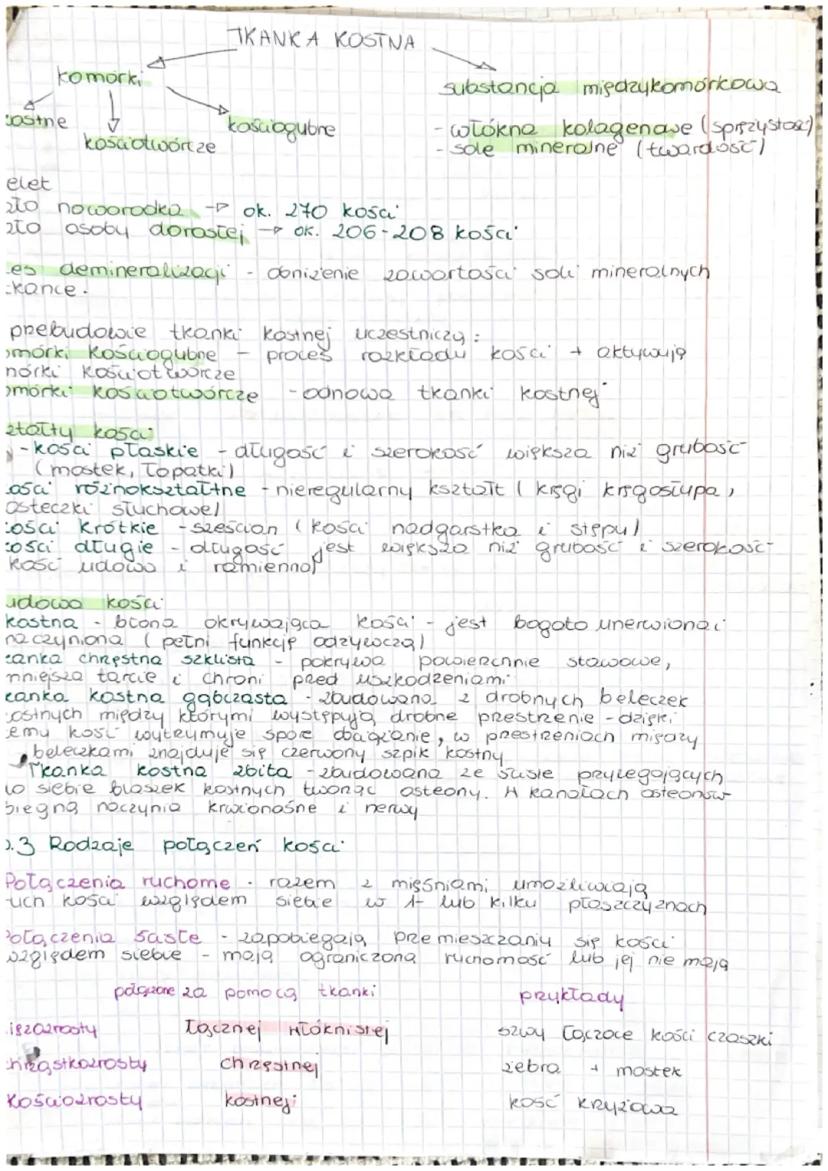 TKANKA KOSTNA
komórki
substancja międzykomórkowa
kostne
kościogubne
- włókna kolagenowe (sprężystość)
kościotwórcze
- sole mineralne (twardość)
elet
noworodka → ok. 270 kości
osoby dorosłej → ok. 206-208 kości
es demineralizacji - obniżenie zawartości soli mineralnych
kance.
przebudowie tkanki kostnej uczestniczy:
omórki kościogubne - proces rozkładu kości + aktywują
mórki kościotwórcze
omórki kościotwórcze - odnowa tkanki kostnej
ztałty kości
- kości płaskie - długość i szerokość większa niż grubość
(mostek, łopatki)
ości różnokształtne - nieregularny kształt (kręgi kręgosłupa,
osteczki słuchowe)
ości krótkie - sześcian (kości nadgarstka i stępu)
ości długie - długość jest większa niż grubość i szerokość
kość udowa i ramienna)
udowa kości
kostna - błona okrywająca kości - jest bogato unerwiona i
naczyniona (pełni funkcję odżywczą)
kanka chrzęstna szklista - pokrywa powierzchnie stawowe,
mniejsza tarcie i chroni przed uszkodzeniami
kanka kostna gąbczasta - zbudowana z drobnych beleczek
kostnych między którymi występują drobne przestrzenie - dzięki
emu kość wytrzymuje spore obciążenie, w przestrzeniach między
beleczkami znajduje się czerwony szpik kostny
Tkanka kostna zbita - zbudowana ze ściśle przylegających
do siebie blaszek kostnych tworząc osteony. W kanałach osteonów
biegną naczynia krwionośne i nerwy
.3 Rodzaje połączeń kości
Połączenia ruchome - razem z mięśniami umożliwiają
ruch kości względem siebie w 1 lub kilku płaszczyznach
Połączenia ścisłe - zapobiegają przemieszczaniu się kości
względem siebie - mają ograniczoną ruchomość lub jej nie mają
połączone za pomocą tkanki
przykłady
ięzozrosty
łącznej włóknistej
szwy łączące kości czaszki
chrząstkozrosty
chrzęstnej
żebra + mostek
kościozrosty
kostnej
kość krzyżowa